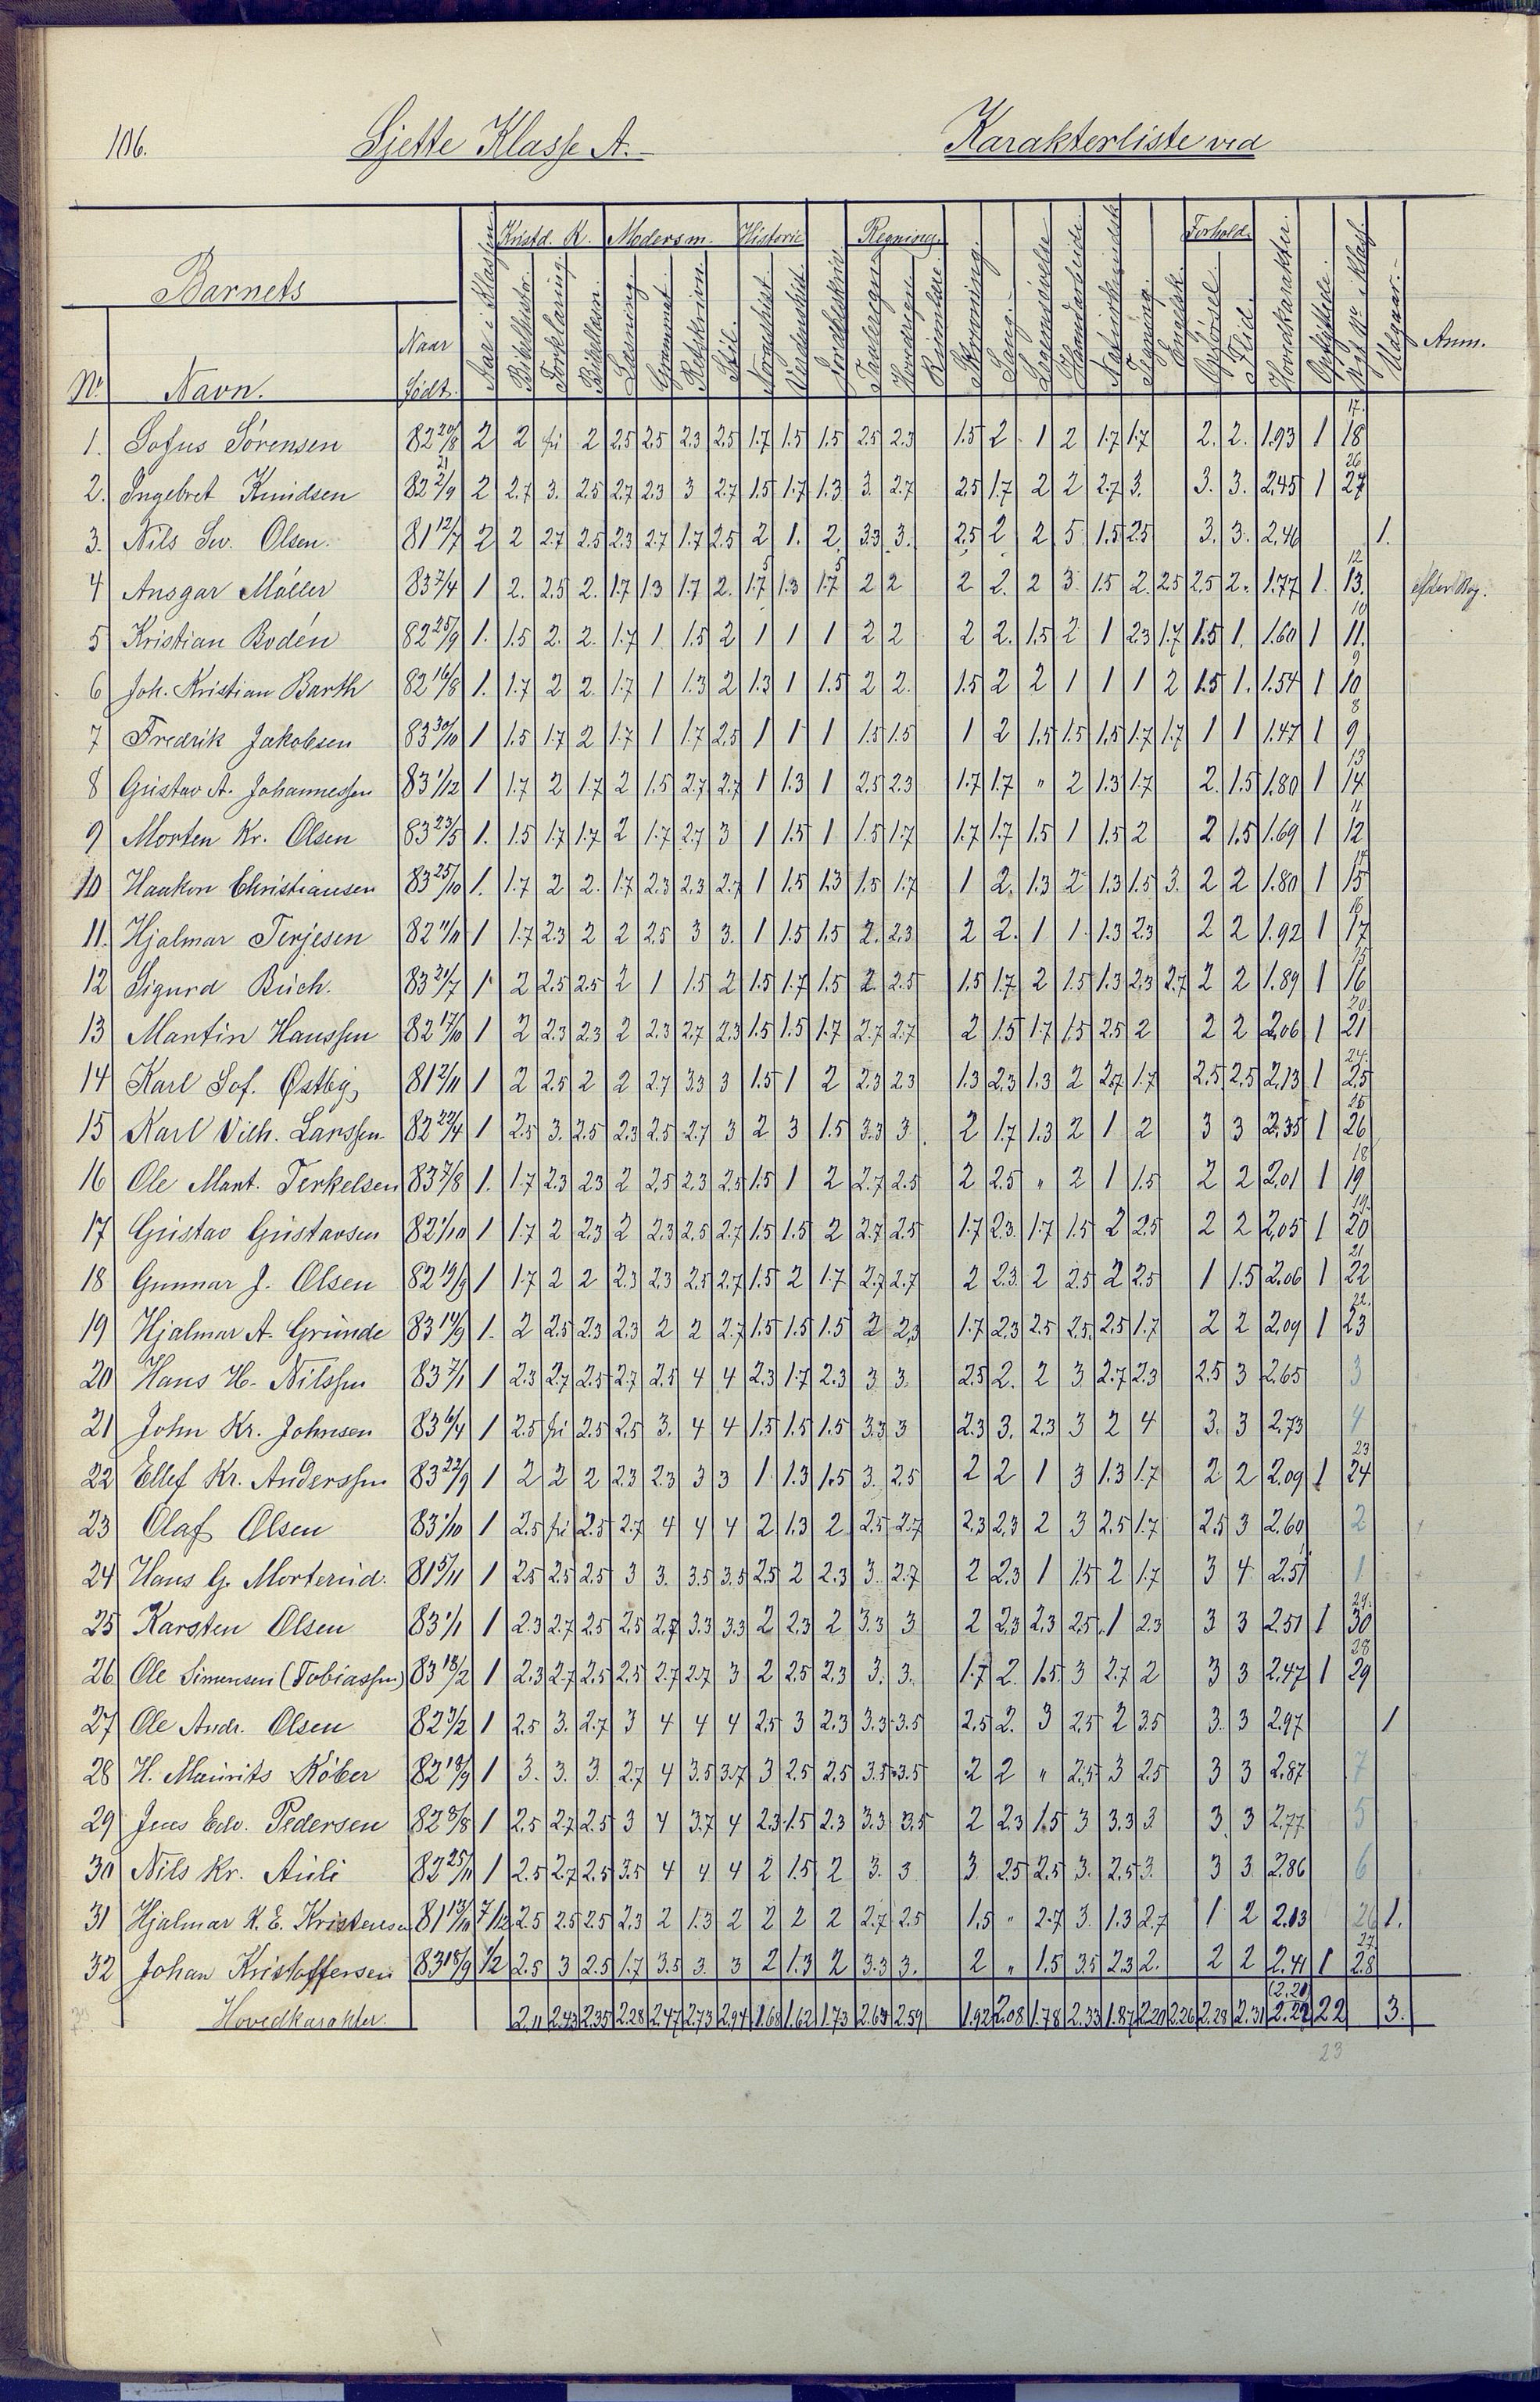 106. Sjette Klasse A.- Karakterliste ved
Kristd. K. Modersm. Historie Regning. Forhold.
Barnets
Aar i Klassen Bibelhistor. Forklaring Bibellæsn. Læsning Grammat. Retskrivn. Stil. Norgeshist. Verdenshist. Jordbeskriv. Tavleregn. Hovedregn. Skrivning. Sang. Legemsøvelse Haandarbeide Naturkundsk. Tegning Engelsk. Opførsel Flid. Hovedkarakter. Opflyttede. Anm.
Nr. Navn. Naar Født.
17.
1. Sofus Sørensen 82 20/8 2 2 fri 2 2.5 2.5 2.3 2.5 1.7 1.5 1.5 2.5 2.3 1.5 2 1 2 1.7 1.7 2. 2. 1.93 1 18
21 26
2. Ingebret Knudsen 82 2/9 2 2.7 3. 2.5 2.7 2.3 3 2.7 1.5 1.7 1.3 3. 2.7 2.5 1.7 2 2 2.7 3. 3. 3. 2.45 1 27
3. Nils Sev. Olsen. 81 12/7 2 2 2.7 2.5 2.3 2.7 1.7 2.5 2 1. 2. 3.3 3. 2.5 2 2 5 1.5 2.5 3. 3. 2.46 1.
12
4 Ansgar Møller 83 7/4 1 2. 2.5 2. 1.7 1.3 1.7 2. 1.7 1.3 1.7 2 2 2 2. 2 3 1.5 2. 2.5 2.5 2. 1.77 1. 13.
10
5 Kristian Bodén 82 25/9 1. 1.5 2. 2. 1.7 1 1.5 2 1 1 1 2 2 2 2. 1.5 2 1 2.3 1.7 1.5 1. 1.60 1 11.
9
6 Joh. Kristian Barth 82 16/8 1. 1.7 2 2. 1.7 1 1.3 2 1.3 1 1.5 2 2. 1.5 2 2 1 1 1 2 1.5 1. 1.54 1 10
8
7 Fredrik Jakobsen 83 30/10 1 1.5 1.7 2 1.7 1 1.7 2.5 1 1 1 1.5 1.5 1 2 1.5 1.5 1.5 1.7 1.7 1 1 1.47 1 9
13
8 Gustav A. Johannessen 83 1/12 1 1.7 2 1.7 2 1.5 2.7 2.7 1 1.3 1 2.5 2.3 1.7 1.7 " 2 1.3 1.7 2. 1.5 1.80 1 14
11
9 Morten Kr. Olsen 83 23/5 1. 1.5 1.7 1.7 2 1.7 2.7 3 1 1.5 1 1.5 1.7 1.7 1.7 1.5 1 1.5 2 2 1.5 1.69 1 12
14
10 Haakon Christiansen 83 25/10 1. 1.7 2 2. 1.7 2.3 2.3 2.7 1 1.5 1.3 1.5 1.7 1 2. 1.3 2 1.3 1.5 3. 2 2 1.80 1 15
16
11. Hjalmar Terjesen 82 11/11 1 1.7 2.3 2 2 2.5 3 3. 1 1.5 1.5 2. 2.3 2 2. 1 1. 1.3 2.3 2 2 1.92 1 17
15
12 Sigurd Buch. 83 21/7 1. 2 2.5 2.5 2 1 1.5 2 1.5 1.7 1.5 2 2.5 1.5 1.7 2 1.5 1.3 2.3 2.7 2 2 1.89 1 16
20.
13 Martin Hanssen 82 17/10 1 2 2.3 2.3 2 2.3 2.7 2.3 1.5 1.5 1.7 2.7 2.7 2 1.5 1.7 1.5 2.5 2 2 2 2.06 1 21
24.
14 Karl Sof. Østby 81 2/11 1 2 2.5 2 2 2.7 3.3 3 1.5 1 2 2.3 2.3 1.3 2.3 1.3 2 2.7 1.7 2.5 2.5 2.13 1 25
25
15 Karl Vilh. Larssen 82 22/4 1 2.5 3. 2.5 2.3 2.5 2.7 3 2 3 1.5 3.3 3. 2 1.7 1.3 2 1 2 3 3 2.35 1 26
18
16 Ole Mart. Terkelsen 83 7/8 1. 1.7 2.3 2.3 2 2.5 2.3 2.5 1.5 1 2 2.7 2.5 2 2.5 " 2 1 1.5 2 2 2.01 1 19
19.
17 Gustav Gustavsen 82 1/10 1 1.7 2 2.3 2 2.3 2.5 2.7 1.5 1.5 2 2.7 2.5 1.7 2.3. 1.7 1.5 2 2.5 2 2 2.05 1 20
21
18 Gunnar J. Olsen 82 19/9 1 1.7 2 2 2.3 2.3 2.5 2.7 1.5 2 1.7 2.7 2.7 2 2.3. 2 2.5 2 2.5 1 1.5 2.06 1 22
22.
19 Hjalmar A. Grunde 83 14/9 1. 2 2.5 2.3 2.3 2 2 2.7 1.5 1.5 1.5 2 2.3 1.7 2.3 2.5 2.5. 2.5 1.7 2 2 2.09 1 23
20 Hans H. Nilssen 83 7/1 1 2.3 2.7 2.5 2.7 2.5 4 4 2.3 1.7 2.3 3 3. 2.5 2. 2 3 2.7 2.3 2.5 3 2.65 3
21 John Kr. Johnsen 83 6/4 1 2.5 fri 2.5 2.5 3. 4 4 1.5 1.5 1.5 3.3 3 2.3 3. 2.3 3 2 4 3. 3 2.73 4
23
22 Ellef Kr. Anderssen 83 22/9 1 2 2 2 2.3 2.3 3 3 1 1.3 1.5 3. 2.5 2 2 1 3 1.3 1.7 2 2 2.09 1 24
23 Olaf Olsen 83 1/10 1 2.5 fri 2.5 2.7 4 4 4 2 1.3 2 2.5 2.7 2.3 2.3 2 3 2.5 1.7 2.5 3 2.60 2
24 Hans G. Morterud. 81 5/11 1 2.5 2.5 2.5 3 3. 3.5 3.5 2.5 2 2.3 3. 2.7 2 2.3 1 1.5 2 1.7 3 4 2.51 1
29.
25 Karsten Olsen 83 1/1 1 2.3 2.7 2.5 2.5 2.7 3.3 3.3 2 2.3 2 3.3 3 2 2.3 2.3 2.5 1 2.3 3 3 2.51 1 30
28
26 Ole Simensen (Tobiassen) 83 18/2 1 2.3 2.7 2.5 2.5 2.7 2.7 3 2 2.5 2.3 3. 3. 1.7 2. 1.5. 3 2.7 2 3 3 2.47 1 29
27 Ole Andr. Olsen 82 3/2 1 2.5 3. 2.7 3 4 4 4 2.5 3 2.3 3.3 3.5 2.5 2. 3 2.5 2 3.5 3. 3 2.97 1
28 H. Mauritz Køber 82 18/9 1 3. 3. 3. 2.7 4 3.5 3.7 3 2.5 2.5 3.5 3.5 2 2 " 2.5 3 2.5 3 3 2.87 7
29 Jens Edv. Pedersen 82 8/8 1 2.5 2.7 2.5 3 4 3.7 4 2.3 1.5 2.3 3.3 3.5 2 2.3 1.5 3 3.3 3 3 3 2.77 5
30 Nils Kr. Auli 82 25/11 1 2.5 2.7 2.5 3.5 4 4 4 2 1.5 2 3. 3 3 2.5 2.5 3. 2.5 3. 3 3 2.86 6
31 Hjalmar K. E. Kristensen 81 13/11 7/12 2.5 2.5 2.5 2.3 2 1.3 2 2 2 2 2.7 2.5 1.5 " 2.7 3. 1.3 2.7 1 2 2.13 26 1.
27
32 Johan Kristoffersen 83 18/9 1/2 2.5 3 2.5 1.7 3.5 3. 3 2 1.3 2 3.3 3. 2 " 1.5 3.5 2.3 2. 2 2 2.41 1 28
(2.20)
Hovedkarakter. 2.11 2.43 2.35 2.28 2.47 2.73 2.94 1.68 1.62 1.73 2.63 2.59 1.92 2.08 1.78 2.33 1.87 2.20 2.26 2.28 2.31 2.22 22 3.
23